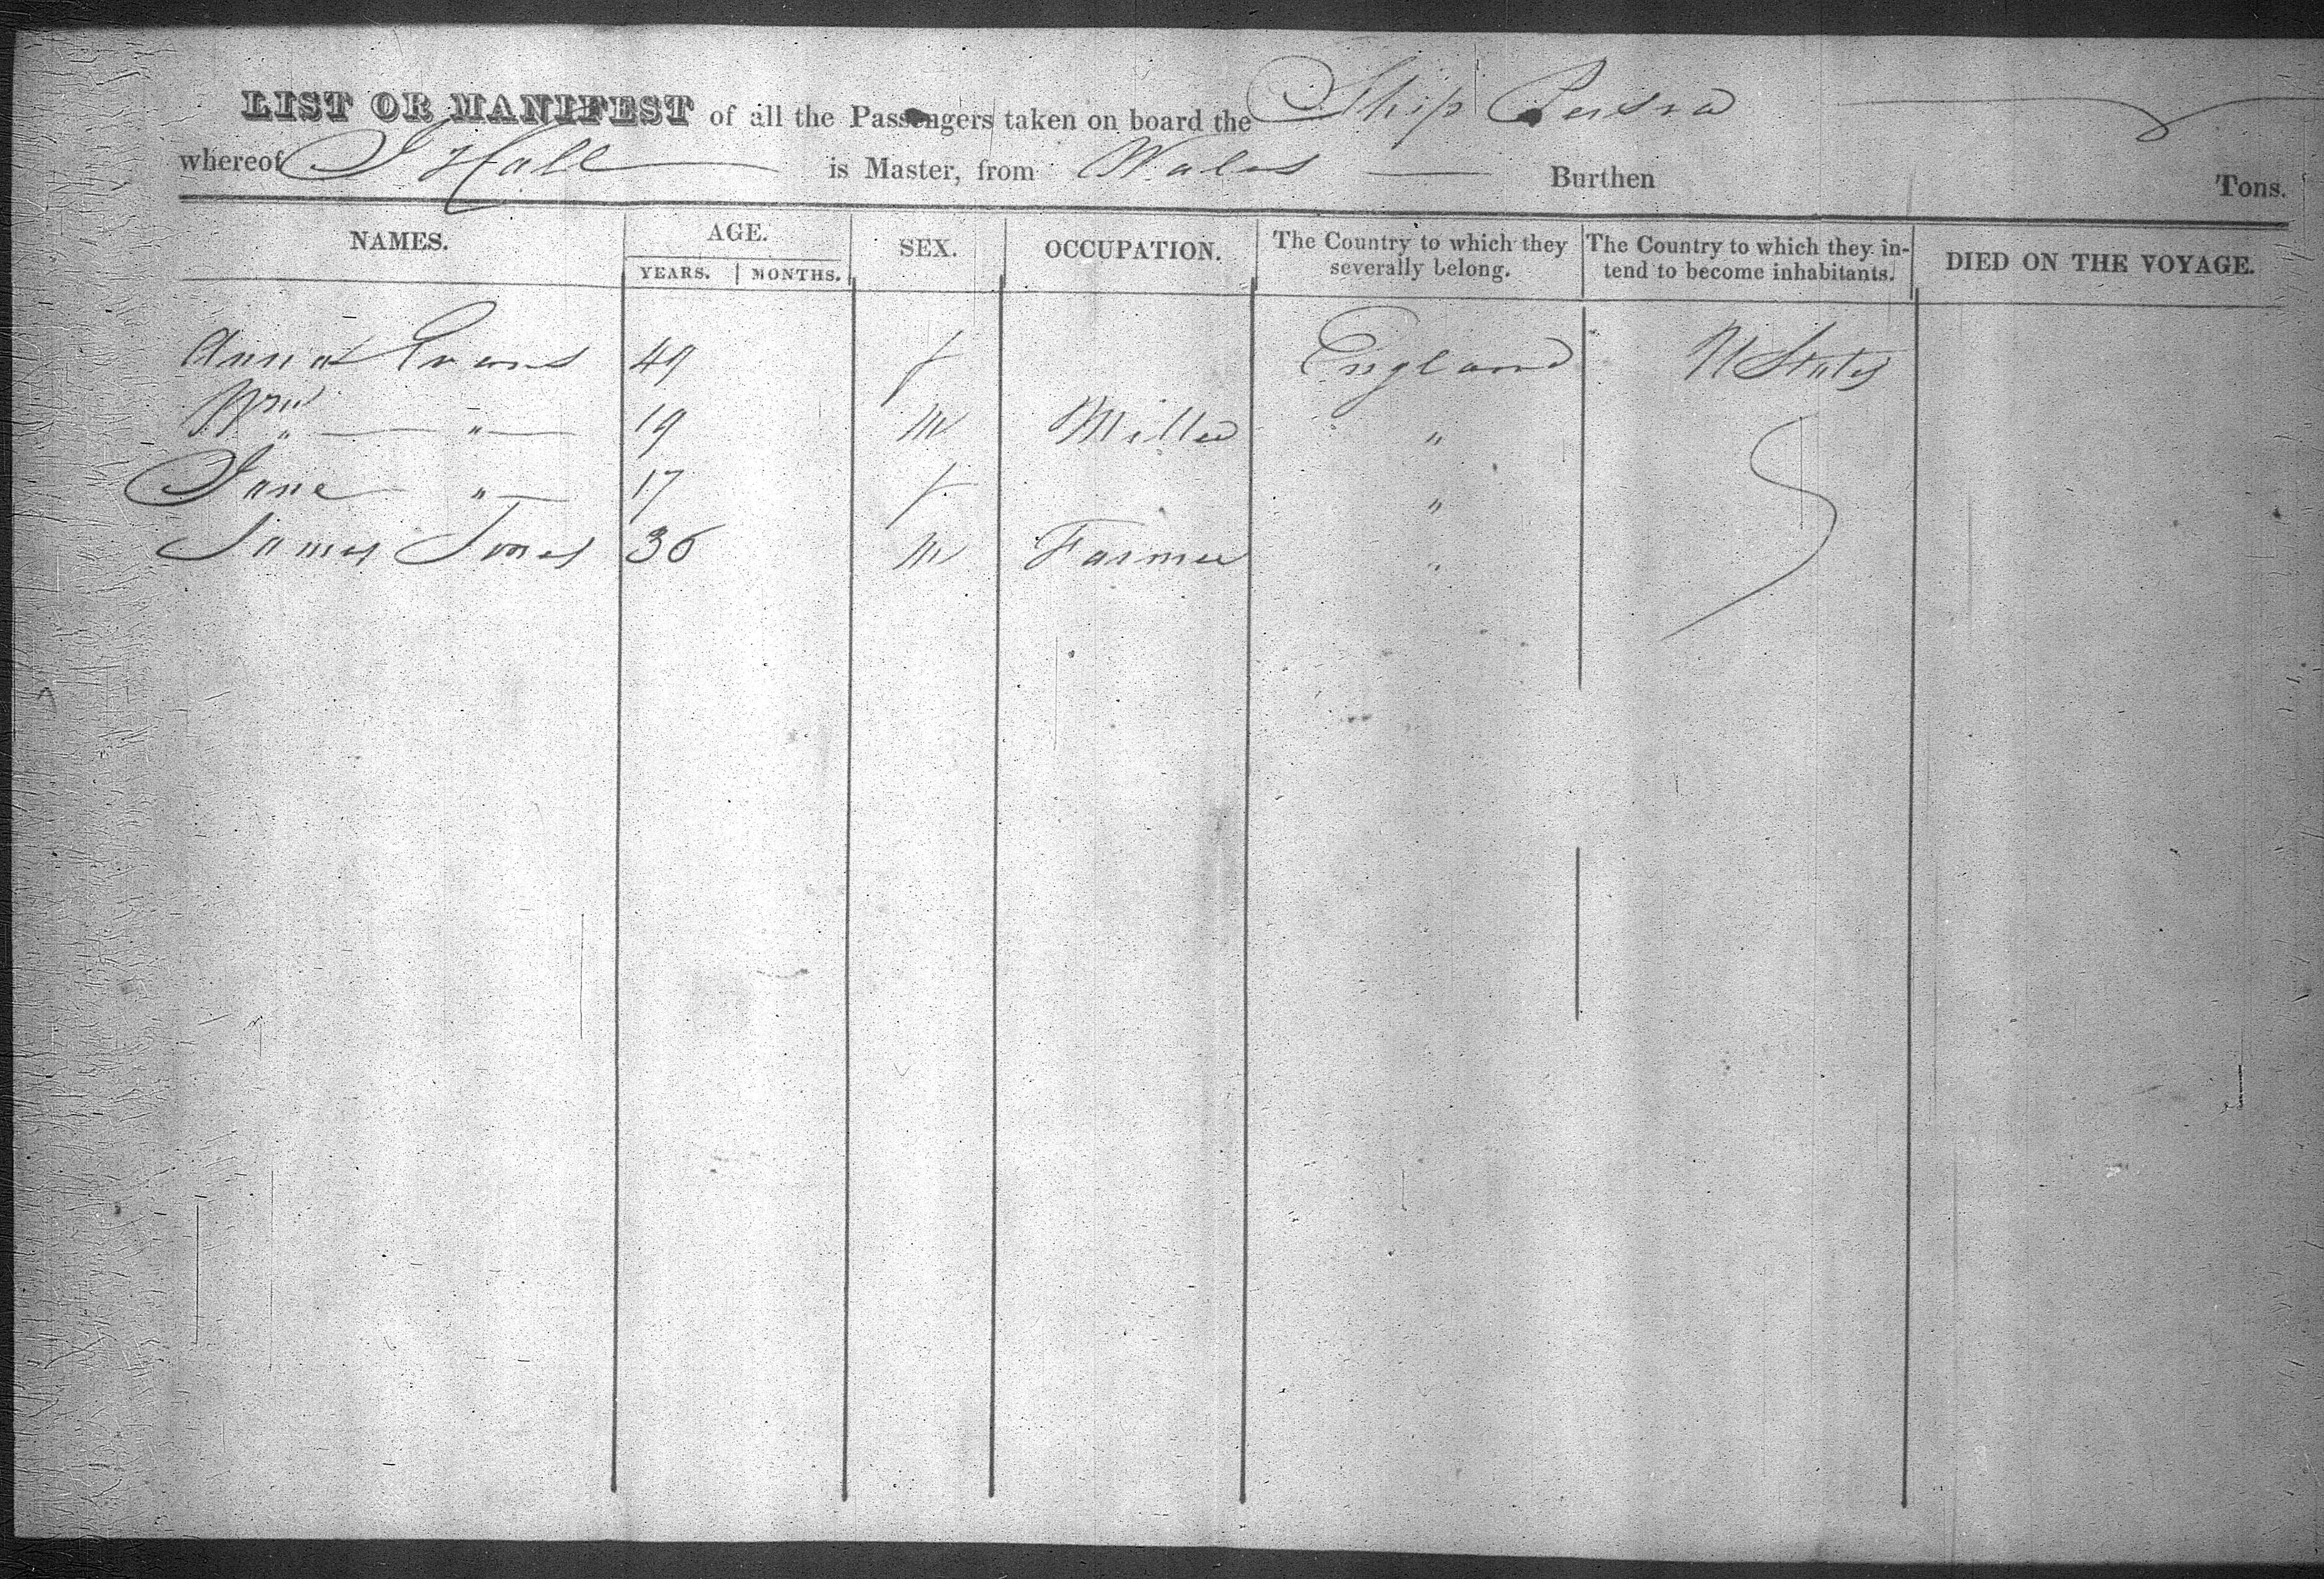 LIST OR MANIFEST of all the Passengers taken on board the Ship
whereof J Hall is Master, from Wales Burthen Tons.
NAMES. AGE. SEX. OCCUPATION. The Country to which they severally belong. The Country to which they intend to become inhabitants. DIED ON THE VOYAGE.
YEARS. MONTHS.
Evans 49 f England U States
Wm " " 19 M Miller "
Jane " 17 f "
James Jones 36 M Farmer "